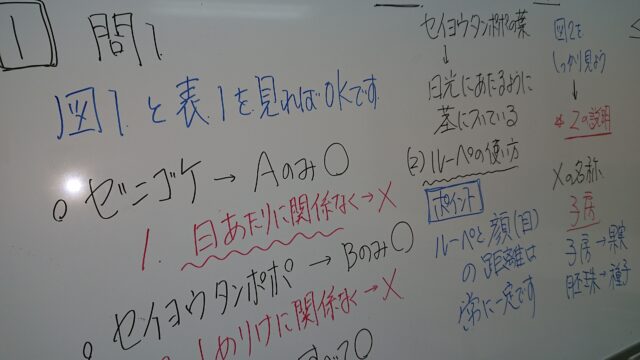 1 問1
図1と表1を見ればOKです
○ ゼニゴケ→Aのみ○
1. 日あたりに関係なく→×
○ セイヨウタンポポ→Bのみ○
しめりけに関係なく→×
セイヨウタンポポの葉
↓
日光にあたるように
茎についている
(2) ルーペの使い方
ポイント
ルーペと顔(目)
の距離は
常に一定です
図2を
しっかり見よう
↓
*Zの説明
Xの名称
子房
子房→果実
胚珠→種子